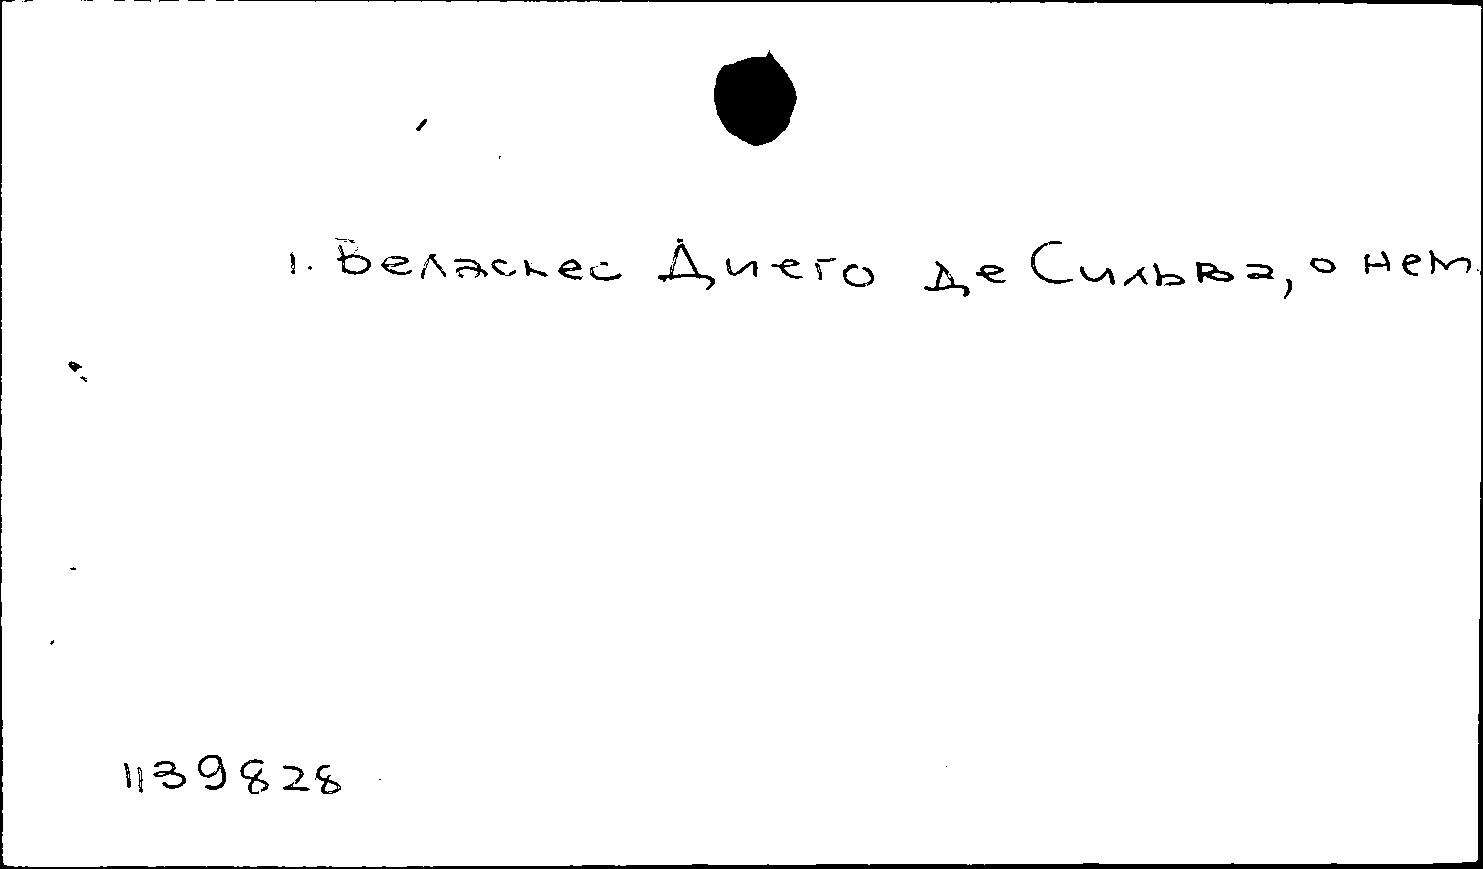 1. Веласкес Диего де Сильва, о нем.
1139828